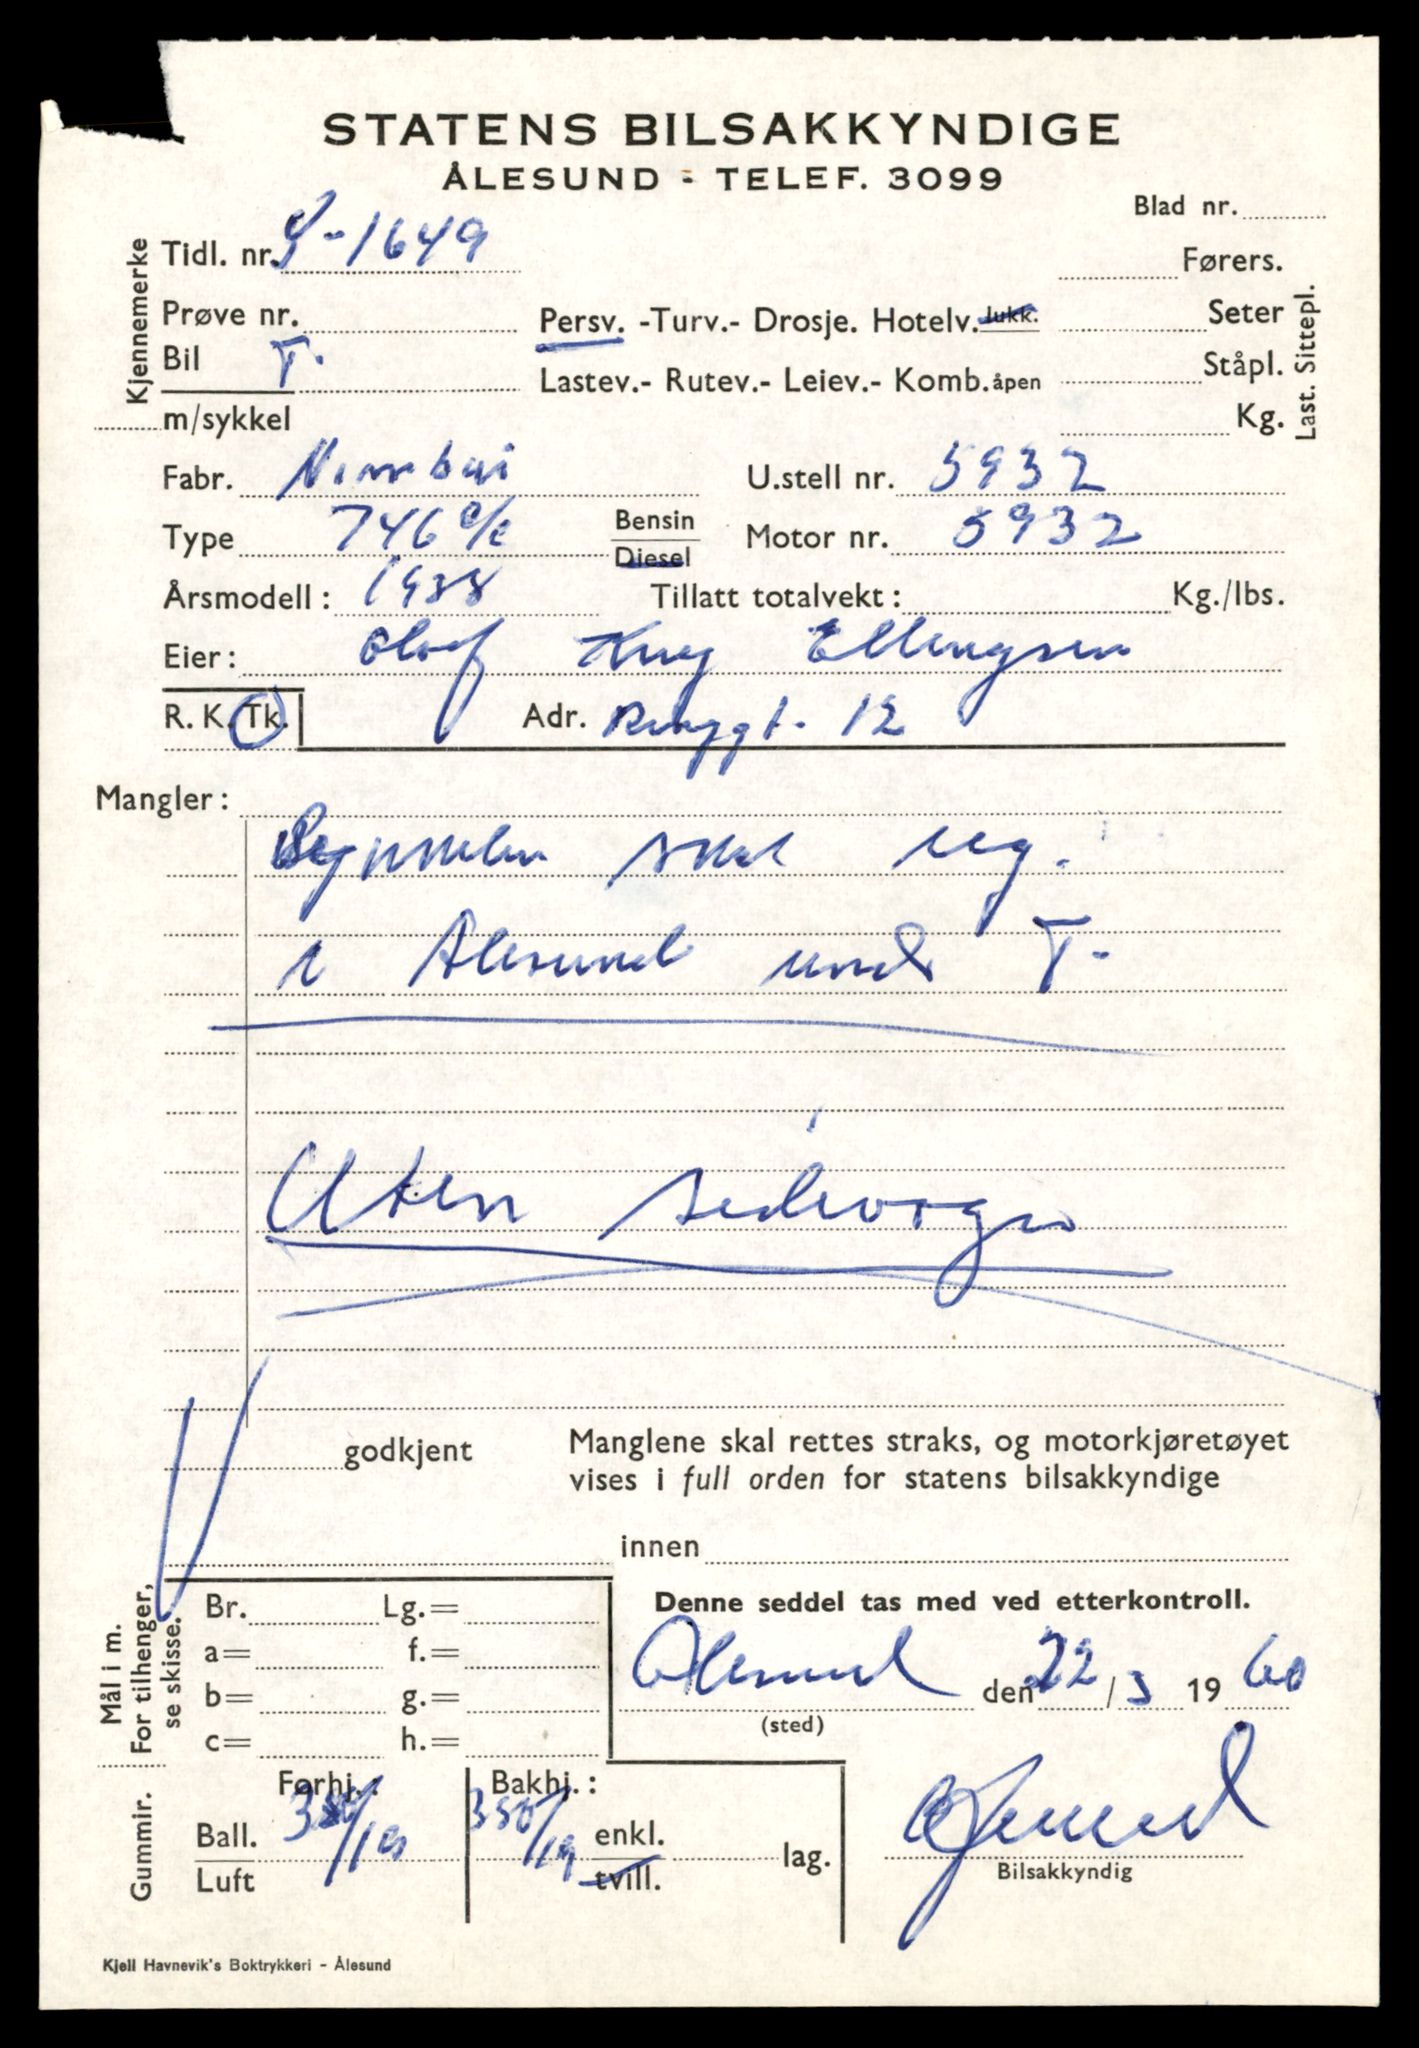 STATENS BILSAKKYNDIGE
ÅLESUND - TELEF. 3099
Blad nr.
Kjennemerke
Tidl. nr. -1649
Førers.
Prøve nr.
Persv. -Turv.- Drosje. Hotelv. lukk.
Seter
Bil T-
Lastev.- Rutev.- Leiev.- Komb. åpen
Ståpl.
Last. Sittepl.
m/sykkel
Kg.
Fabr. Nimbus
U.stell nr. 5932
Type 746 c/c
Bensin
Diesel
Motor nr. 5932
Årsmodell: 1938
Tillatt totalvekt: Kg./lbs.
Eier: Olaf Ellingsen
R. K. Tk.
Adr. 12
Mangler:
skal reg.
i Ålesund under T-
Uten sidevogn
godkjent
Manglene skal rettes straks, og motorkjøretøyet
vises i full orden for statens bilsakkyndige
innen
Mål i m.
For tilhenger,
se skisse.
Br. Lg.=
a= f.=
b= g.=
c= h.=
Denne seddel tas med ved etterkontroll.
Ålesund den 22/3 1960
(sted)
Gummir.
Forhj.:
Bakhj.:
Ball. 350/19
Luft
350/19 enkl.
tvill.
lag.
Bilsakkyndig
Kjell Havnevik's Boktrykkeri - Ålesund